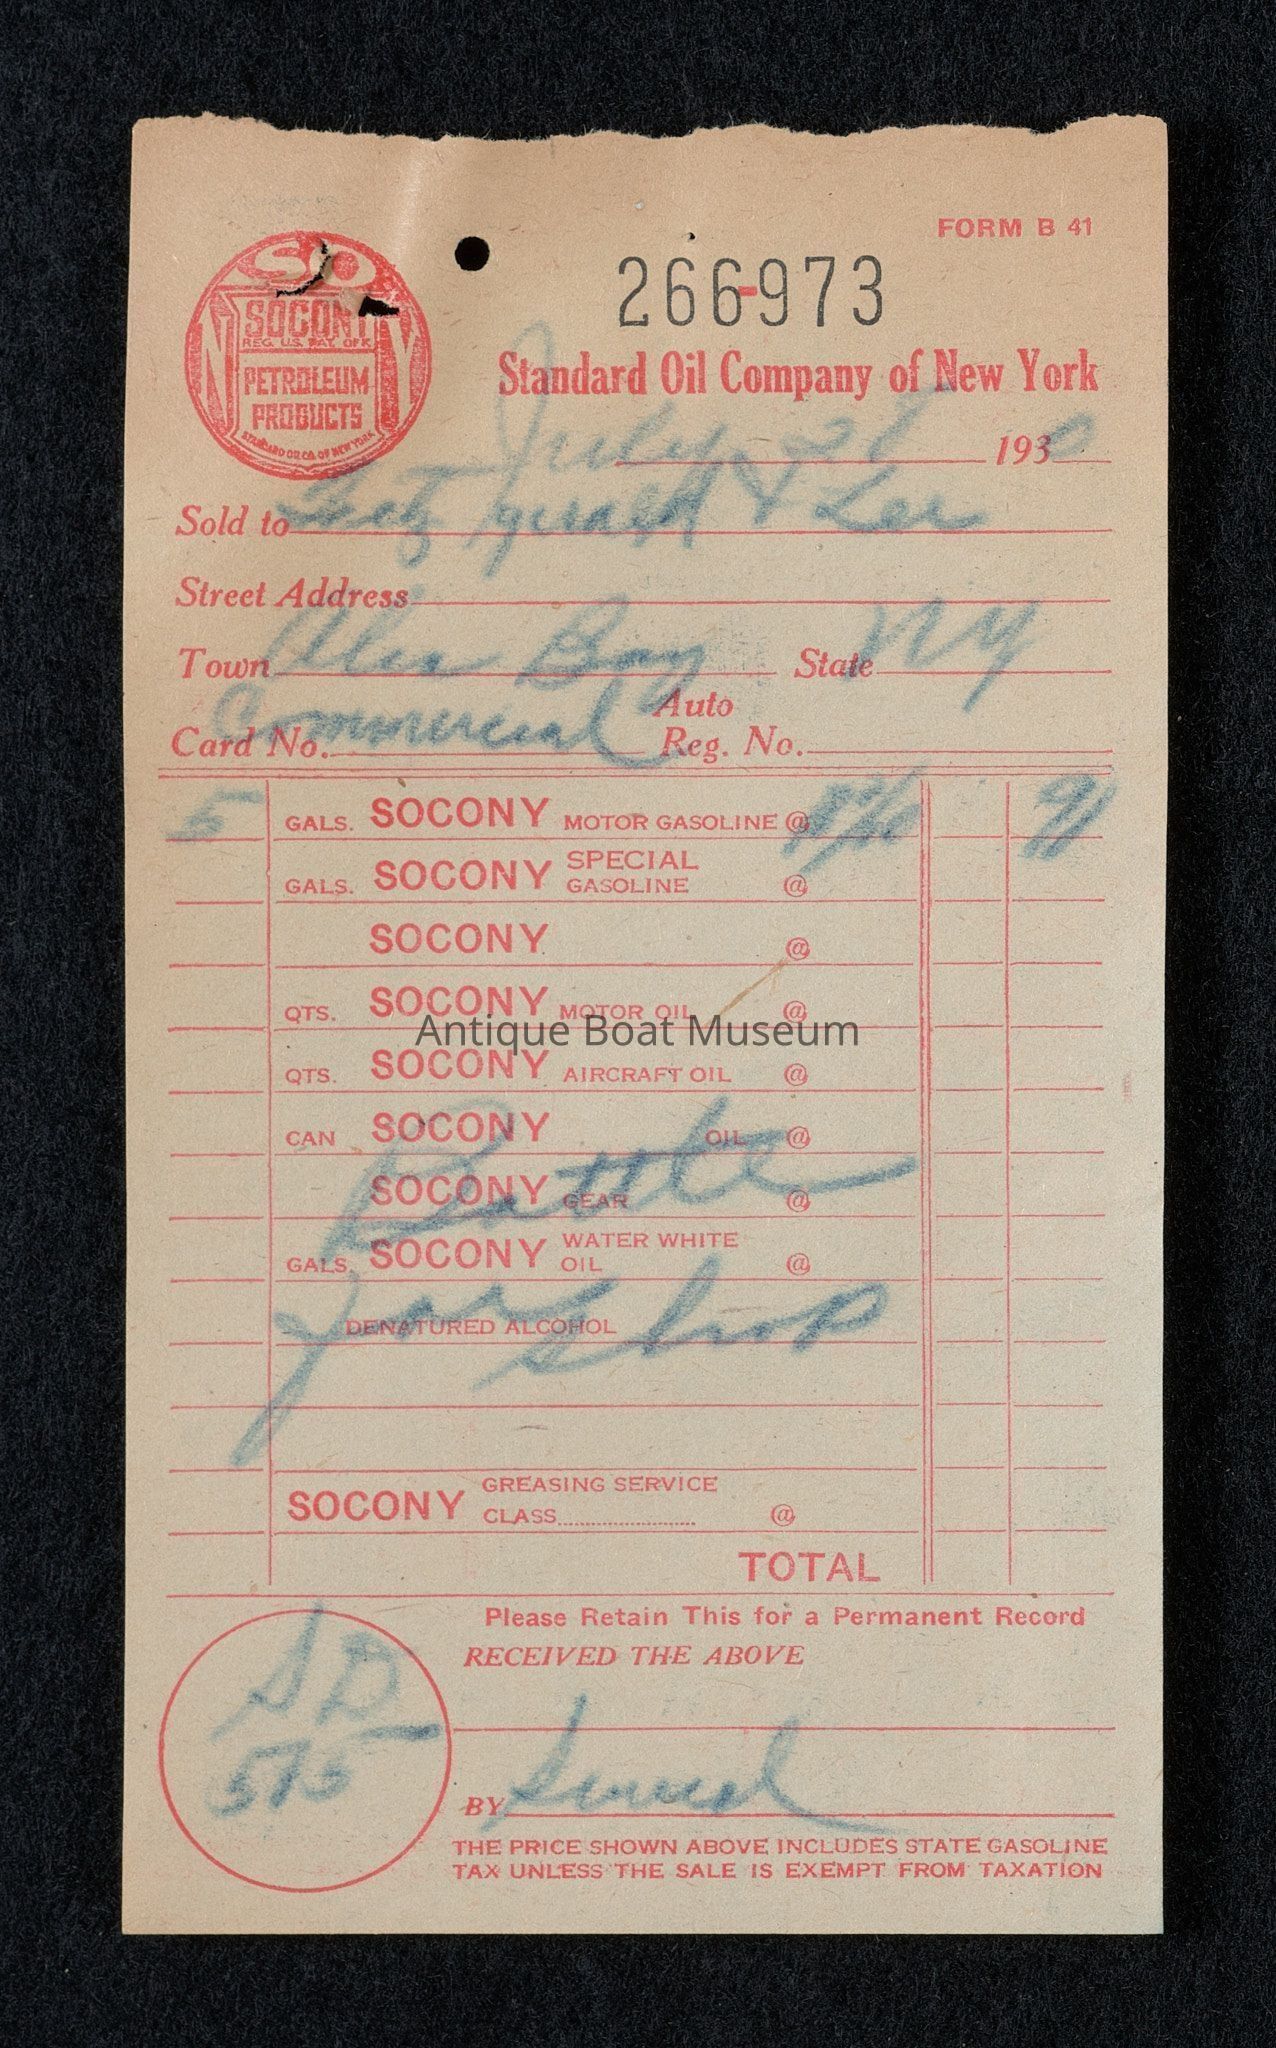 FORM B 41
266-973
SOCONY
REG. U.S. PAT. OFF.
PETROLEUM
PRODUCTS
STANDARD OIL CO. OF NEW YORK
Standard Oil Company of New York
July 28 1930
Sold to Fitzgerald & Lee
Street Address
Town Alex Bay State NY
Commercial Auto
Card No. Reg. No.
5 GALS. SOCONY MOTOR GASOLINE @ 91
GALS. SOCONY SPECIAL GASOLINE @
SOCONY @
QTS. SOCONY MOTOR OIL @
Antique Boat Museum
QTS. SOCONY AIRCRAFT OIL @
CAN SOCONY OIL @
SOCONY GEAR @
GALS. SOCONY WATER WHITE OIL @
DENATURED ALCOHOL
Shop
SOCONY GREASING SERVICE
CLASS @
TOTAL
Please Retain This for a Permanent Record
RECEIVED THE ABOVE
SD
515
BY
THE PRICE SHOWN ABOVE INCLUDES STATE GASOLINE
TAX UNLESS THE SALE IS EXEMPT FROM TAXATION